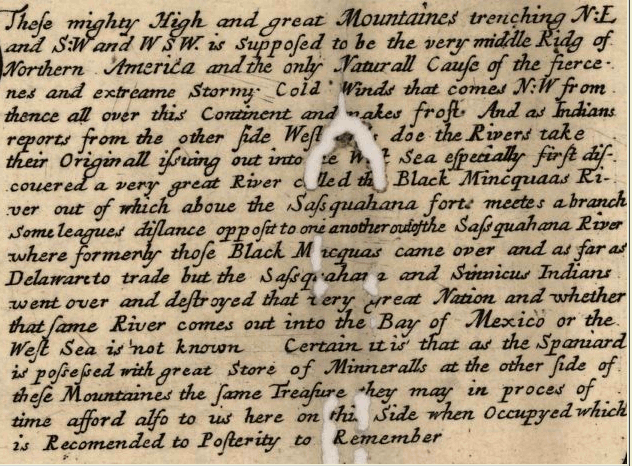 Theſe mighty High and great Mountaines trenching N:E
and S:W and W S W. is Supposed to be the very middle Ridg of
Northern America and the only Naturall Cauſe of the fierce-
nes and extreame Stormy Cold Winds that comes N:W from
thence all over this Continent and makes froſt And as Indians
reports from the other ſide Weſt doe the Rivers take
their Originall iſsuing out into Weſt Sea eſpecially firſt diſ-
couered a very great River called the Black Mincquaas Ri-
ver out of which aboue the Saſsquahana forte meetes a branch
Some leagues diſtance oppoſit to one another outofthe Saſsquahana River
where formerly thoſe Black Mincquas came over and as far as
Delaware to trade but the Saſsquahana and Sinnicus Indians
went over and deſtroyed that very great Nation and whether
that ſame River comes out into the Bay of Mexico or the
Weſt Sea is not known Certain it is that as the Spaniard
is poſseſsed with great Store of Minneralls at the other ſide of
theſe Mountaines the ſame Treaſure they may in proces of
time afford alſo to us here on this Side when Occupyed which
is Recomended to Poſterity to Remember